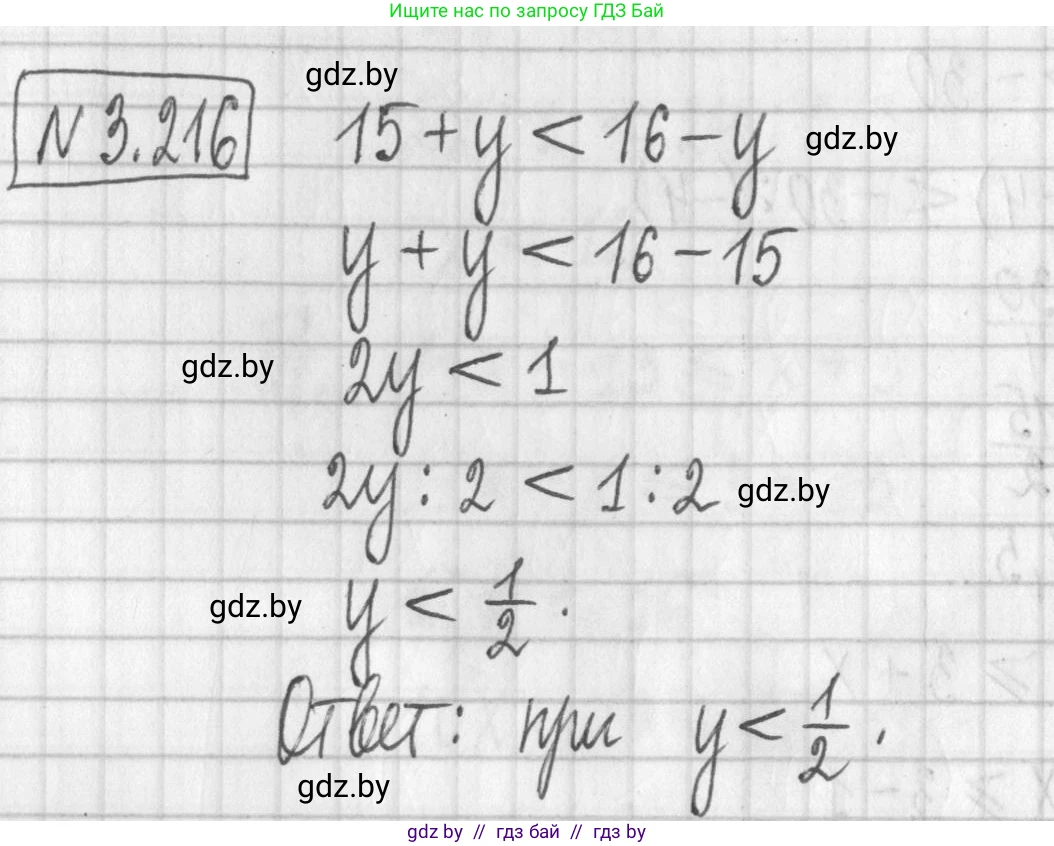 Ищите нас по запросу ГДЗ Бай
gdz.by
N 3.216
15 + y < 16 - y gdz.by
y + y < 16 - 15
gdz.by 2y < 1
2y : 2 < 1 : 2 gdz.by
gdz.by y < 1/2 .
Ответ: при y < 1/2 .
gdz.by
gdz by // гдз бай // гдз by